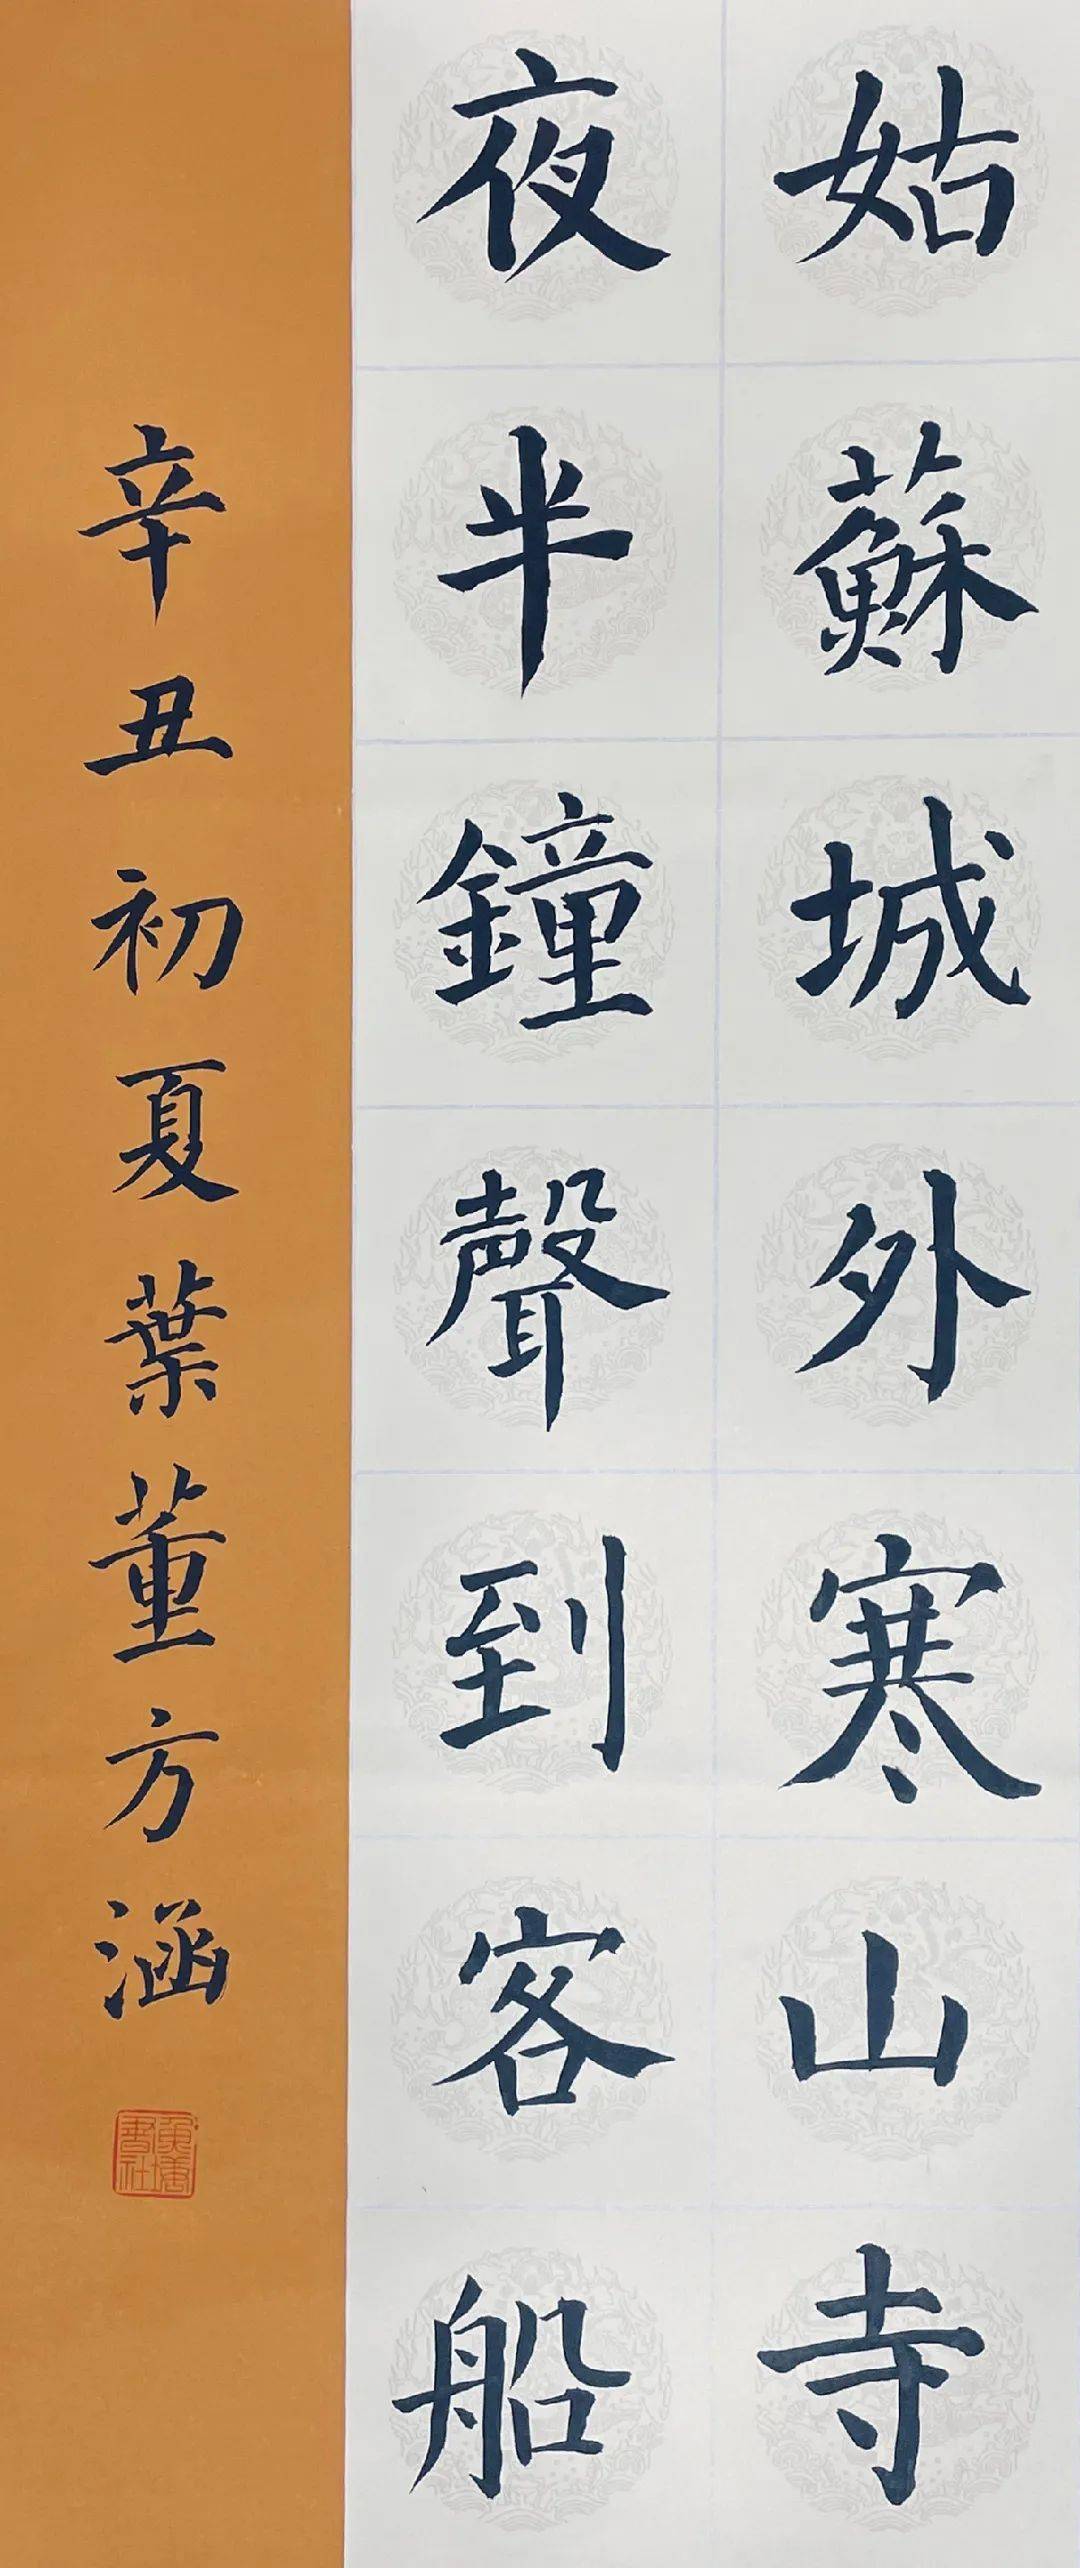 姑蘇城外寒山寺
夜半鐘聲到客船
辛丑初夏葉董方涵